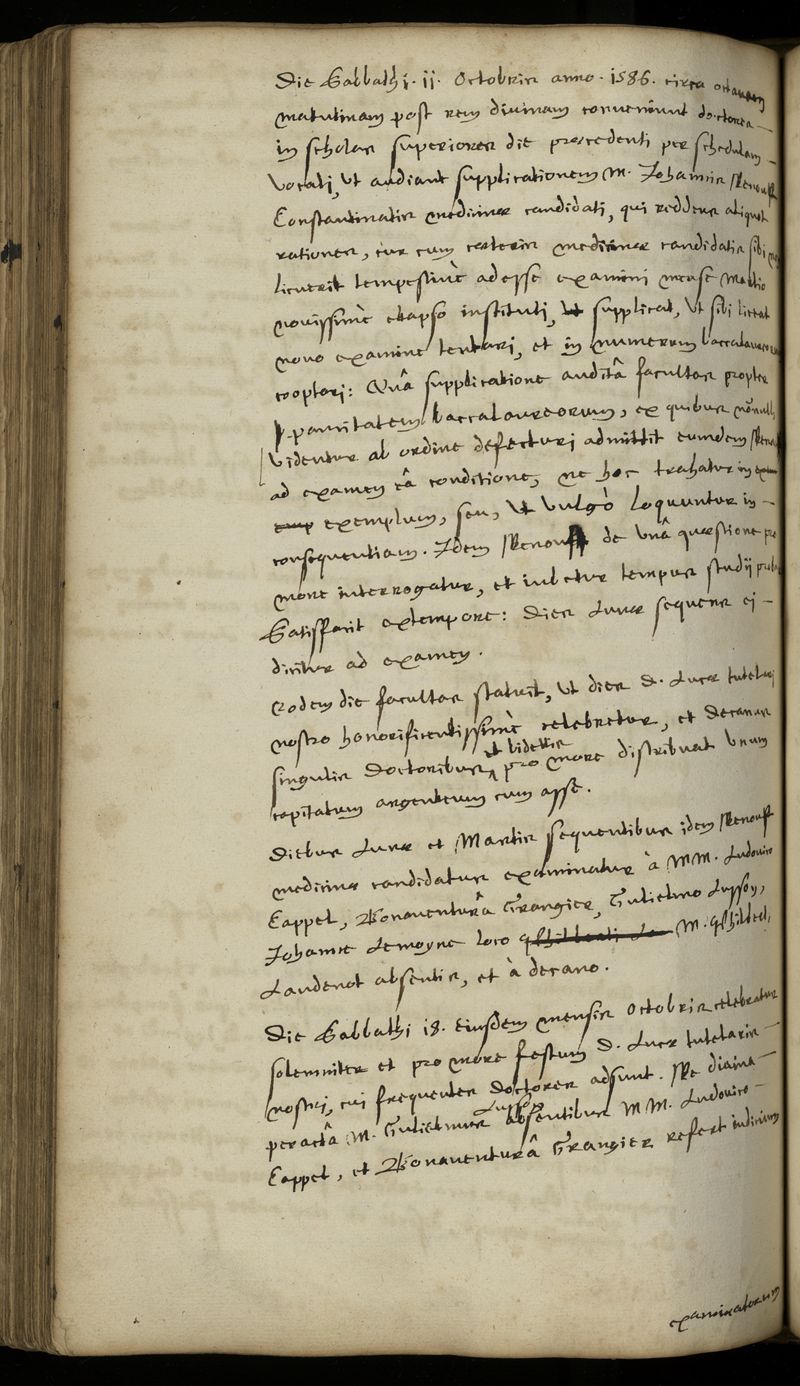 Die Sabbathi. 11. Octobris anno. 1586. circa octavam
matutinam post rem divinam convenerunt doctores
in scholas superiores die præcedenti per schedulam
vocati, Ut audiant supplicationem M. Johannis Renouff
Constantinatis medicinæ candidati, qui reddens aliquot
rationes, cur cum cæteris medicinæ candidatis sibi non
licuerit tempestivè adesse examini mense Martio
novissimè elapso instituti, supplicat, Ut sibi liceat
novo examine tentari, et in numerum baccalaureorum
cooptari: Quâ supplicatione auditâ facultas propter
paucitatem baccalaureorum, ex quibus nonnulli
Videntur ab ordine defecturi admittit eumdem Renouff
ad examen eâ conditione, ne hoc trahatur in
exemplum, seu, Ut vulgò loquuntur in
consequentiam. Idem Renouff de unâ quæstione pro
more interrogatur, et iubetur tempus studij
Satisfacit extempore: Dies Lunæ sequens ei
dicitur ad examen.
Eodem die facultas statuit, Ut dies D. Lucæ tutelaris
nostro honorificentissimè celebretur, et Decanus
singulis Doctoribus pro more distribuat Unum
capitatum argenteum cum asse.
Diebus Lunæ et Martis sequentibus idem Renouff
medicinæ candidatus examinatur à MM. Ludovico
Cappel, Bonaventurâ Grangier, Gulielmo Lusson,
Johanne Lemoyne loco M. Philiberti
Landenot absentis, et à decano.
Die Sabbathi 18. Eiusdem mensis Octobris celebratur
solemniter et pro more festum D. Lucæ tutelaris
nostri, cui frequenter Doctores adsunt. Re divina
peractâ M. Gulielmus Lusson absentibus MM. Ludovico
Cappel, et Bonaventurâ Grangier refert iudicium
examinatorum